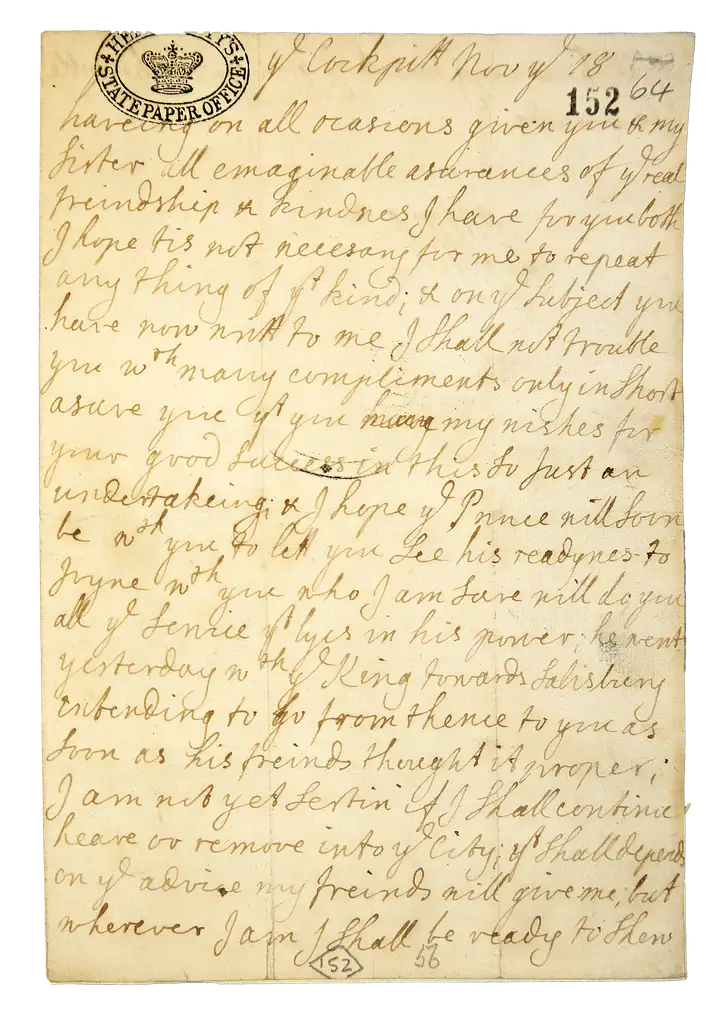 HER MAJESTY'S
STATE PAPER OFFICE
yᵉ Cockpitt Nov yᵉ 18
152 64
haveing on all ocasions given you & my
Sister all emaginable asurances of yᵉ real
freindship & kindnes I have for you both
I hope tis not necesary for me to repeat
any thing of yᵗ kind; & on yᵉ Subject you
have now writt to me I Shall not trouble
you wᵗʰ many compliments only in Short
asure you yᵗ you have my wishes for
your good Success in this So Just an
undertakeing; & I hope yᵉ Prince will Soon
be wᵗʰ you to lett you See his readynes to
joyne wᵗʰ you who I am Sure will do you
all yᵉ Service yᵗ lyes in his power; he went
yesterday wᵗʰ yᵉ King towards Salisbury
intending to go from thence to you as
Soon as his freinds thought it proper;
I am not yet Sertin if I Shall continue
heare or remove into yᵉ City; yᵗ Shall depend
on yᵉ advise my freinds will give me, but
wherever I am I Shall be ready to Shew
152 56